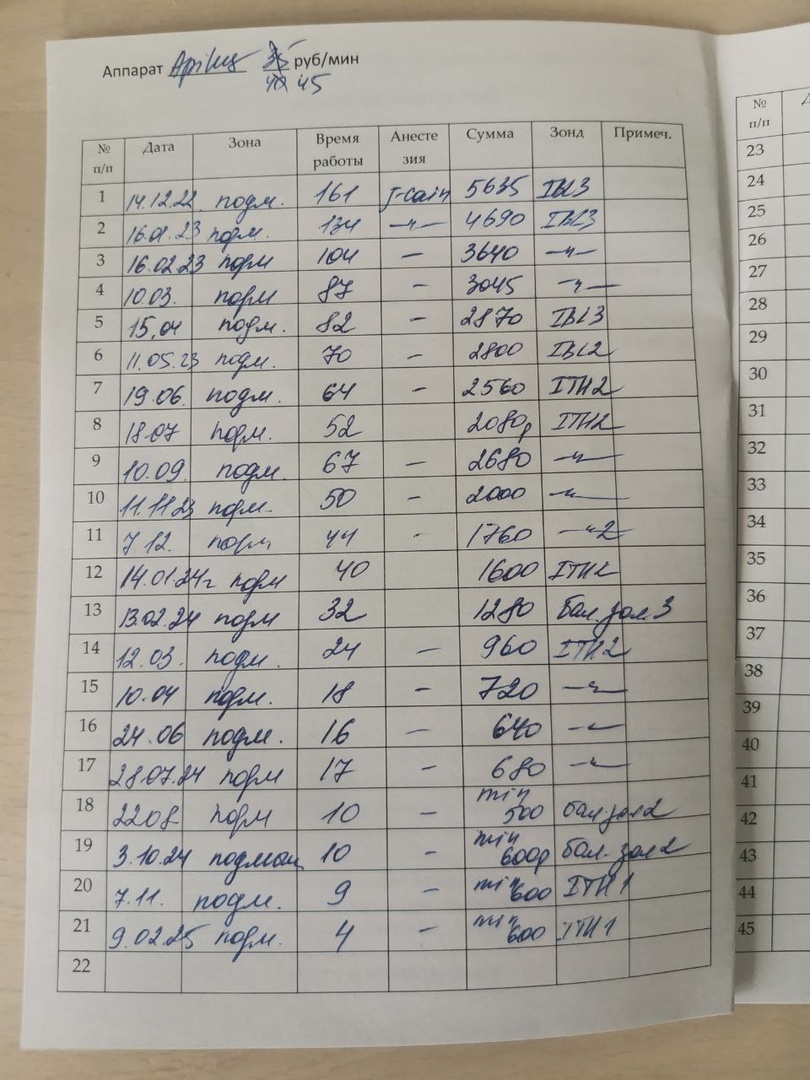 Аппарат Apilus 35 руб/мин
40 45
№ п/п Дата Зона Время работы Анесте зия Сумма Зонд Примеч.
1 14.12.22 подм. 161 J-cain 5635 IBL3
2 16.01.23 подм. 134 —"— 4690 IBL3
3 16.02.23 подм 104 — 3640 —"—
4 10.03. подм 87 — 3045 —"—
5 15,04 подм. 82 — 2870 IBL3
6 11.05.23 подм. 70 — 2800 IBL2
7 19.06. подм. 64 — 2560 ITH2
8 18.07 подм. 52 2080р ITH2
9 10.09. подм. 67 — 2680 —"—
10 11.11.23 подм. 50 - 2000 —"—
11 7.12. подм 44 - 1760 —"2
12 14.01.24г подм 40 1600 ITH2
13 13.02.24 подм 32 1280 бал.зол.3
14 12.03. подм. 24 — 960 ITH2
15 10.04 подм. 18 - 720 —"—
16 24.06 подм. 16 — 640 —"—
17 28.07.24 подм 17 - 680 —"—
18 22.08 подм 10 - min 500 бал.зол2
19 3.10.24 подмыш 10 - min 600р бал. зол2
20 7.11. подм. 9 - min 600 ITH1
21 9.02.25 подм. 4 - min 600 ITH1
22
№ п/п
23
24
25
26
27
28
29
30
31
32
33
34
35
36
37
38
39
40
41
42
43
44
45